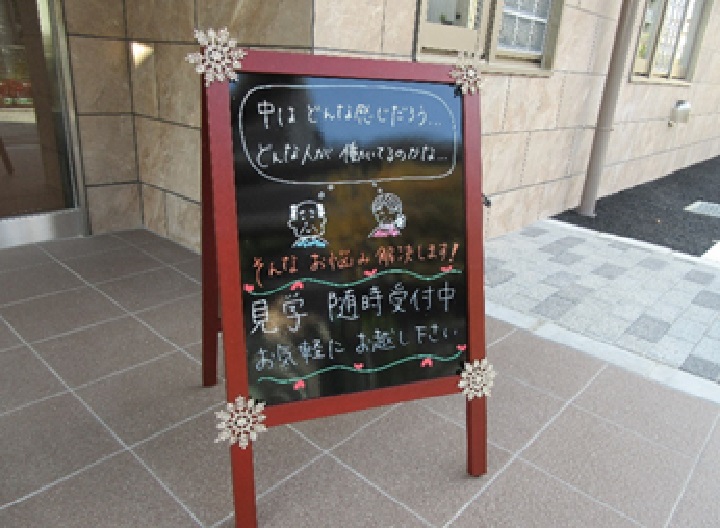 中は どんな感じだろう...
どんな人が 働いてるのかな...
そんな お悩み 解決します!
見学 随時受付中
お気軽に お越し下さい